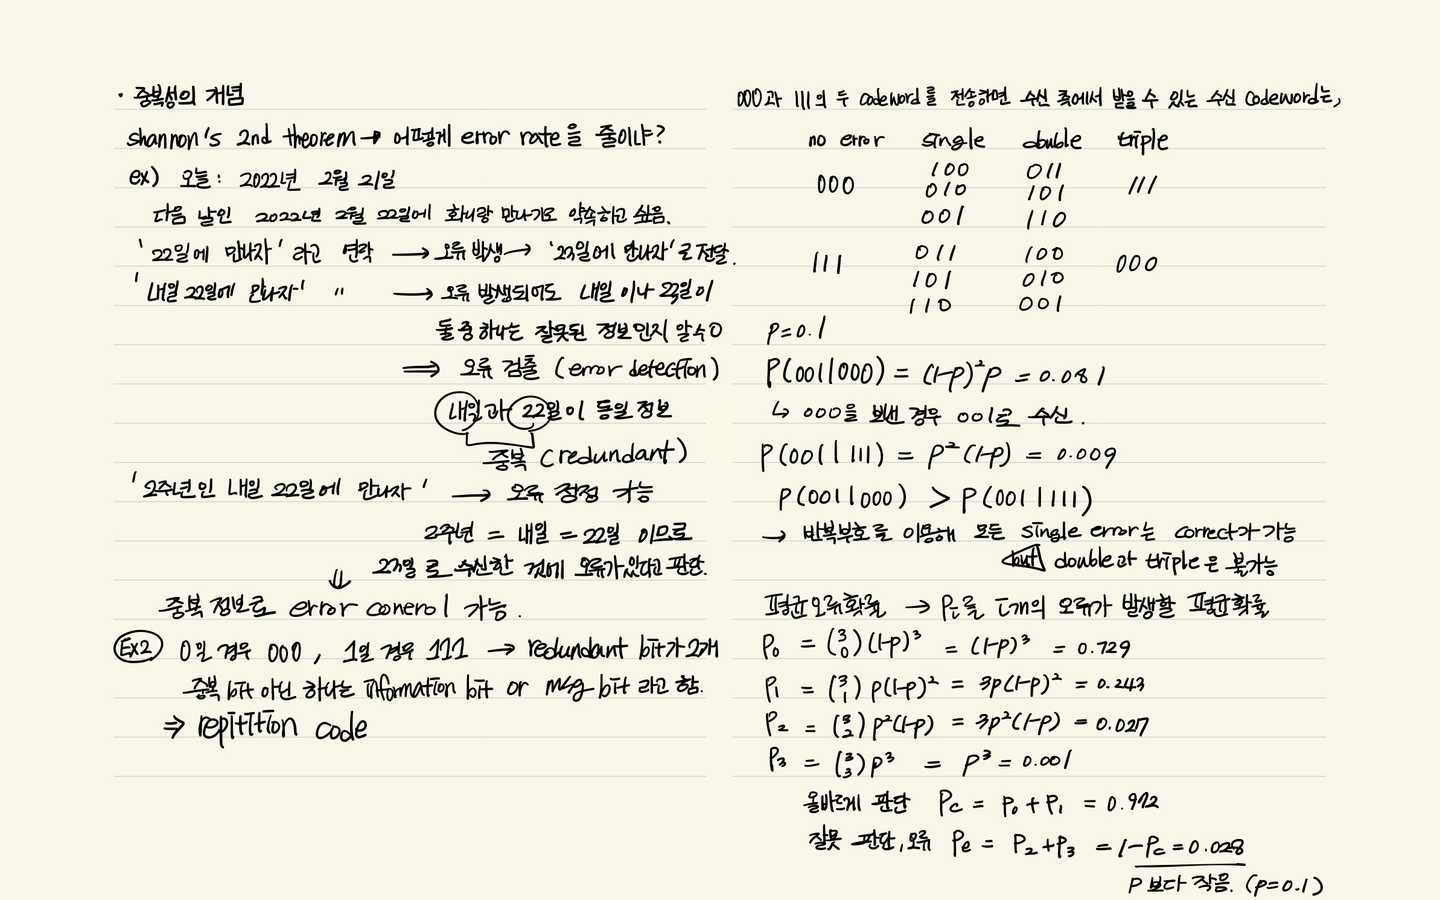 · 중복성의 개념
shannon's 2nd theorem → 어떻게 error rate을 줄이냐?
ex) 오늘: 2022년 2월 21일
다음 날인 2022년 2월 22일에 화니랑 만나기로 약속하고 싶음.
'22일에 만나자' 라고 연락 → 오류 발생 → '23일에 만나자'로 전달.
'내일 22일에 만나자' " → 오류 발생되어도 내일이나 23일이
둘 중 하나는 잘못된 정보인지 알 수 O
⇒ 오류 검출 (error detection)
내일과 22일이 동일 정보
중복 (redundant)
'2주년인 내일 22일에 만나자' → 오류 정정 가능
2주년 = 내일 = 22일 이므로
23일로 수신한 것에 오류가 있다고 판단.
↓
중복 정보로 error conerol 가능.
Ex2 0일 경우 000, 1일 경우 111 → redundant bit가 2개
중복 bit 아닌 하나는 information bit or msg bit 라고 함.
⇒ repitition code
000과 111의 두 codeword를 전송하면 수신 측에서 받을 수 있는 수신 codeword는,
no error single double triple
000 100 011 111
010 101
001 110
111 011 100 000
101 010
110 001
p=0.1
P(001|000) = (1-p)²p = 0.081
↳ 000을 보낸 경우 001로 수신.
P(001|111) = p²(1-p) = 0.009
P(001|000) > P(001|111)
→ 반복부호를 이용해 모든 single error는 correct가 가능
but double과 triple은 불가능
평균오류확률 → Pᵢ를 i개의 오류가 발생할 평균확률
P₀ = (3 0)(1-p)³ = (1-p)³ = 0.729
P₁ = (3 1) p(1-p)² = 3p(1-p)² = 0.243
P₂ = (3 2) p²(1-p) = 3p²(1-p) = 0.027
P₃ = (3 3) p³ = p³ = 0.001
올바르게 판단 Pc = P₀ + P₁ = 0.972
잘못 판단, 오류 Pe = P₂ + P₃ = 1-Pc = 0.028
P 보다 작음. (p=0.1)